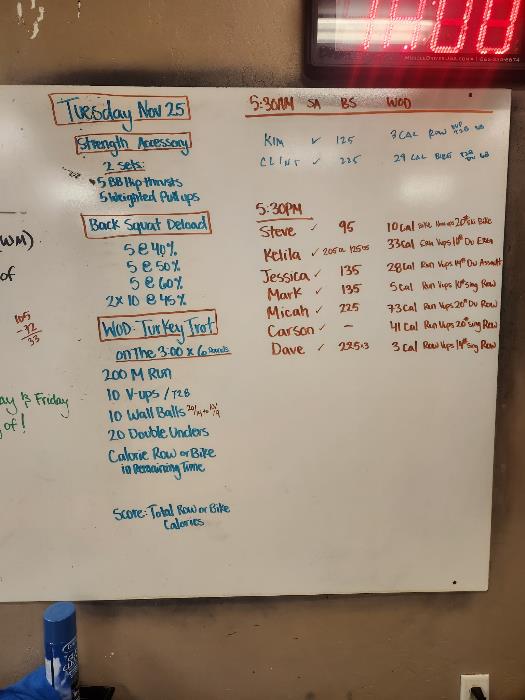 MuscleDriverUSA.com
Tuesday Nov 25
Strength Accessory
2 sets:
5 BB Hip thrusts
5 Weighted Pull ups
Back Squat Deload
5 @ 40%
5 @ 50%
5 @ 60%
2x10 @ 45%
WOD: Turkey Trot
on The 3:00 x 6 Rounds
200 M Run
10 V-ups / T2B
10 Wall Balls 20/14 to 10/9
20 Double Unders
Calorie Row or Bike
in Remaining Time
Score: Total Row or Bike
Calories
5:30AM SA BS WOD
KIM ✓ 125 3 CAL ROW
CLINT ✓ 225 29 CAL BIKE
5:30PM
Steve ✓ 95 10 Cal Bike 20# Bike
Kelila ✓ 33 Cal Vups 10# Du
Jessica ✓ 135 28 Cal Run Vups 14# Du Assault
Mark ✓ 135 5 Cal Run Vups 10# Sing Row
Micah ✓ 225 73 Cal Run Vups 20# Du Row
Carson ✓ - 41 Cal Run Vups 20# sing Row
Dave ✓ 225x3 3 Cal Row Vups 14# sing Row
WM)
of
105
-72
33
ay is Friday
of!